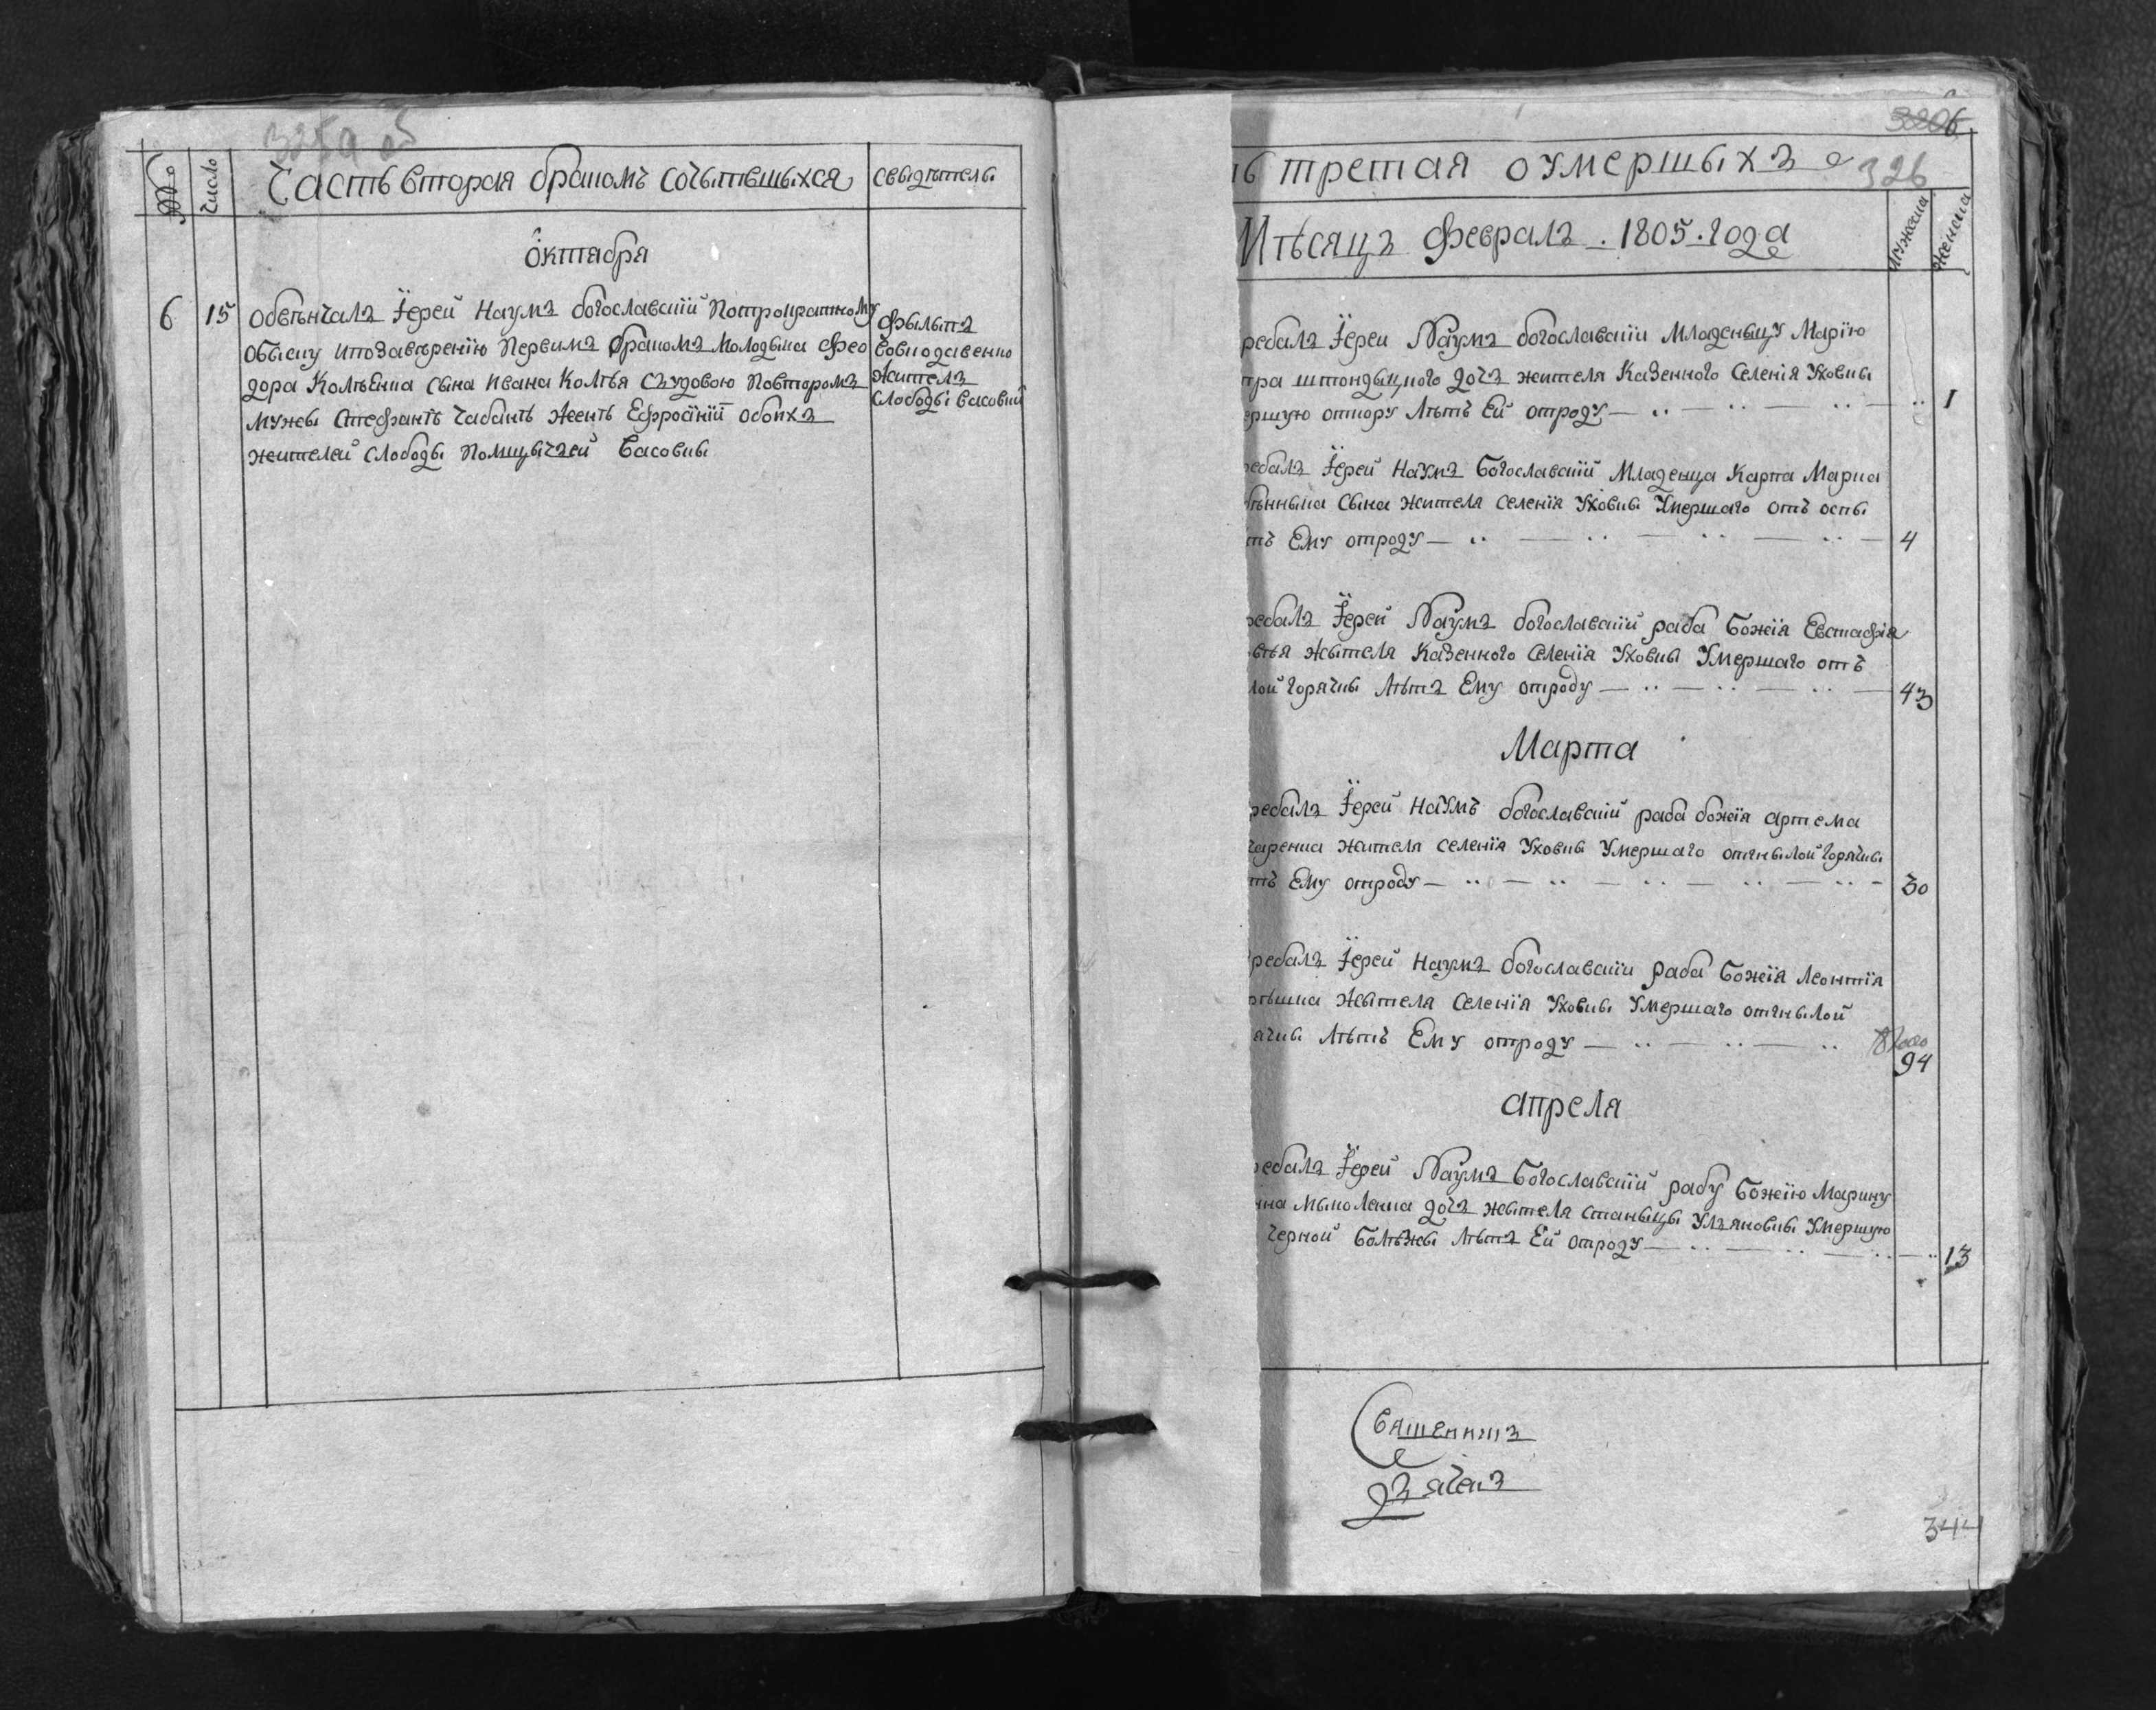 325а об
Число
Часть вторая бракомъ сочытавшыхся
свыдѣтелы
октабра
6 15 обвѣнчалъ Їерей Наумъ богославскїй Потрократному
обыску ипозавѣренїю Первимъ бракомъ Молодыка Фео
дора Колѣсныка сына Ивана Колѣся съудовою Повторомъ
мужы Стефанѣ чабанѣ Женѣ Ефросінїй обоихъ
жителей слободы Помщычей Басовкы
Фылыпъ
Бовкодавенко
Жителъ
слободы Басовкы
3206
326
третая оумершыхъ
Мѣсяцъ Февралъ . 1805 . года
Мужеска
Женска
ребалъ Їерей Наумъ богославскїй Младеныцу Марїю
тра штондыцкого дочъ жителя Казенного Селенїя Уховкы
ершую откору Лѣтъ Ей отроду — 1
ребалъ Їерей Наумъ Богославскїй Младенца Карпа Марка
сына жителя селенїя Уховкы Умершаго отъ оспы
тъ Ему отроду — 4
ребалъ Їерей Наумъ богославскїй раба Божїя Евстафїя
жытеля Казенного Селенїя Уховкы Умершаго отъ
лой горячкы Лѣтъ Ему отроду — 43
Марта
ребалъ Їерей Наумъ богославскїй раба божїя артема
жителя селенїя Уховкы Умершаго отгнылой горячкы
тъ Ему отроду — 30
ребалъ Їерей Наумъ богославскїй раба Божїя Леонтїя
жытеля селенїя Уховкы Умершаго отгнылой
ячкы Лѣтъ Ему отроду — 94
апреля
ребалъ Їерей Наумъ Богославскїй рабу Божїю Марину
дочъ жытеля станыцы Улъяновкы Умершую
черной Болѣзны Лѣтъ Ей отроду — 13
Свяшенникъ
дъячокъ
344